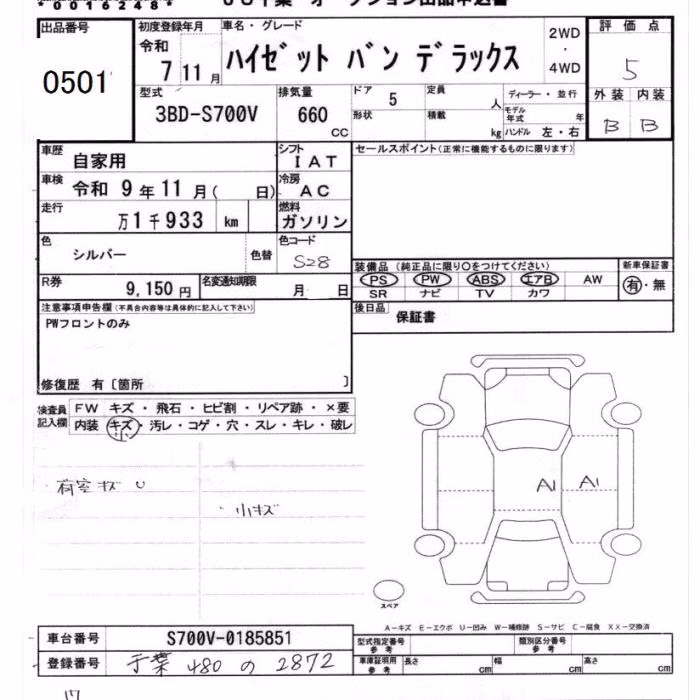 * 0 0 1 6 2 4 8 *
出品番号
0501
初度登録年月
令和
7 11 月
車名・グレード
ハイゼット バン デラックス
2WD
・
4WD
評価点
5
外装 内装
B B
型式
3BD-S700V
排気量
660
CC
ドア 5
形状
定員 人
積載 kg
ディーラー・並行
モデル年式 年
ハンドル 左・右
車歴 自家用
シフト IAT
セールスポイント(正常に機能するものに限ります)
車検 令和 9 年 11 月( 日)
冷房 AC
走行 万 1 千 933 km
燃料 ガソリン
色 シルバー 色替
色コード S28
装備品 (純正品に限り〇をつけてください)
新車保証書
PS PW ABS エアB AW
有・無
SR ナビ TV カワ
R券 9,150 円
名変通知期限 月 日
後日品 保証書
注意事項申告欄(不具合内容等は具体的に記入して下さい)
PWフロントのみ
修復歴 有〔箇所 〕
検査員記入欄
FW キズ・飛石・ヒビ割・リペア跡・×要
内装 キズ・汚レ・コゲ・穴・スレ・キレ・破レ
小
荷室キズ U
小キズ
A1 A1
スペア
A-キズ E-エクボ U-凹み W-補修跡 S-サビ C-腐食 XX-交換済
車台番号 S700V-0185851
型式指定番号 参考
類別区分番号 参考
登録番号 千葉 480 の 2872
車庫証明用 参考
長さ cm 幅 cm 高さ cm